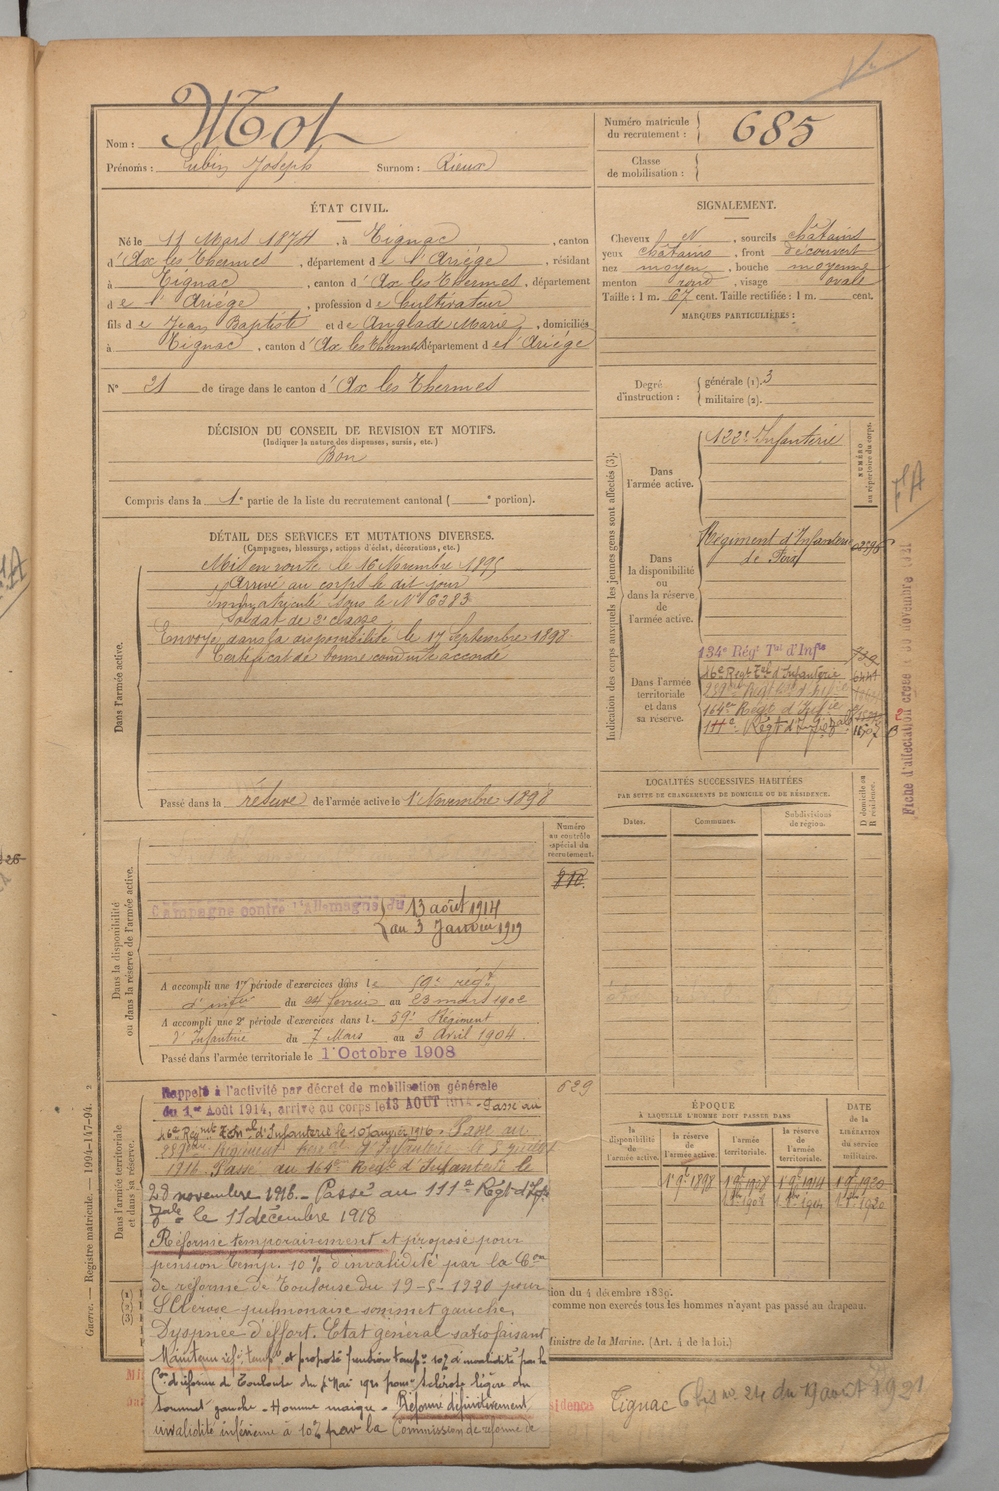 Nom : Mot
Prénoms : Lubin Joseph Surnom : Rieux
Numéro matricule du recrutement : 685
Classe de mobilisation :
ÉTAT CIVIL.
Né le 11 Mars 1874, à Tignac, canton
d'Ax les Thermes, département de l'Ariège, résidant
à Tignac, canton d'Ax les Thermes, département
de l'Ariége, profession de Cultivateur
fils de Jean Baptiste et de Anglade Marie, domiciliés
à Tignac, canton d'Ax les Thermes département de l'Ariége
N° 21 de tirage dans le canton d'Ax les Thermes
SIGNALEMENT.
Cheveux et N, sourcils châtains
yeux châtains, front découvert
nez moyen, bouche moyenne
menton rond, visage ovale
Taille : 1 m. 67 cent. Taille rectifiée : 1 m. cent.
MARQUES PARTICULIÈRES :
Degré d'instruction : générale (1). 3
militaire (2).
DÉCISION DU CONSEIL DE REVISION ET MOTIFS.
(Indiquer la nature des dispenses, sursis, etc.)
Bon
Compris dans la 1e partie de la liste du recrutement cantonal ( e portion).
DÉTAIL DES SERVICES ET MUTATIONS DIVERSES.
(Campagnes, blessures, actions d'éclat, décorations, etc.)
Dans l'armée active.
Mis en route le 16 Novembre 1895
Arrivé au corps le dit jour
Immatriculé sous le N° 6383
Soldat de 2e classe
Envoyé dans la disponibilité le 17 Septembre 1898
Certificat de bonne conduite accordé
Passé dans la réserve de l'armée active le 1er Novembre 1898
Indication des corps auxquels les jeunes gens sont affectés (3).
NUMÉRO au répertoire du corps.
Dans l'armée active.
122e Infanterie
Dans la disponibilité ou dans la réserve de l'armée active.
Régiment d'Infanterie
de Foix
Dans l'armée territoriale et dans sa réserve.
134e Régt Tal d'Infie
16e Regt Tal d'Infanterie 6441
164e Regt d'Infie
111e Régt d'Infie
Fiche d'affectation
novembre
LOCALITÉS SUCCESSIVES HABITÉES
PAR SUITE DE CHANGEMENTS DE DOMICILE OU DE RÉSIDENCE.
Dates.
Communes.
Subdivisions de région.
D domicile ou R résidence.
Dans la disponibilité ou dans la réserve de l'armée active.
Numéro au contrôle spécial du recrutement.
810
Campagne contre l'Allemagne du 13 août 1914
au 3 Janvier 1919
A accompli une 1re période d'exercices dans le 59e régt
d'infie du 24 février au 23 mars 1902
A accompli une 2e période d'exercices dans le 59e Régiment
d'Infanterie du 7 Mars au 3 Avril 1904.
Passé dans l'armée territoriale le 1er Octobre 1908
Dans l'armée territoriale et dans sa réserve.
629
Rappelé à l'activité par décret de mobilisation générale
du 1er Août 1914, arrivé au corps le 13 AOUT 1914. Passé au
16e Régt Tal d'Infanterie le 10 Janvier 1916. Passé au
Régiment d'Infanterie le
1916. Passé au 164e Régt d'Infanterie le
28 novembre 1916. Passé au 111e Régt d'Inf.
Tale le 11 décembre 1918
Réformé temporairement et proposé pour
pension temp. 10 % d'invalidité par la Con
de réforme de Toulouse du 19-5-1920 pour
Sclérose pulmonaire sommet gauche.
Dyspnée d'effort. Etat général satisfaisant
Maintenu réf. temp. et proposé pension temp. 10% d'invalidité par la
Con de réforme de Toulouse du Mai 1921 pour sclérose légère du
sommet gauche. Homme maigre. Réformé définitivement
invalidité inférieure à 10% par la Commission de réforme de
ÉPOQUE
À LAQUELLE L'HOMME DOIT PASSER DANS
la disponibilité de l'armée active.
la réserve de l'armée active.
l'armée territoriale.
la réserve de l'armée territoriale.
DATE de la LIBÉRATION du service militaire.
1er 9bre 1898 1er 9bre 1908 1er 9bre 1914 1er 9bre 1920
tion du 4 décembre 1839.
comme non exercés tous les hommes n'ayant pas passé au drapeau.
Ministre de la Marine. (Art. 4 de la loi.)
sidence Tignac 6 bis no 24 du 19 août 1921
Guerre. — Registre matricule. — 1994-147-94.